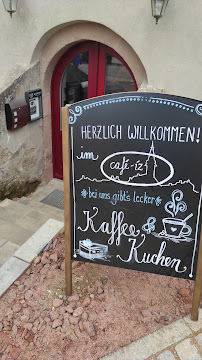 HERZLICH WILLKOMMEN!
im
café-iz
*bei uns gibt's lecker*
Kaffee
Kuchen